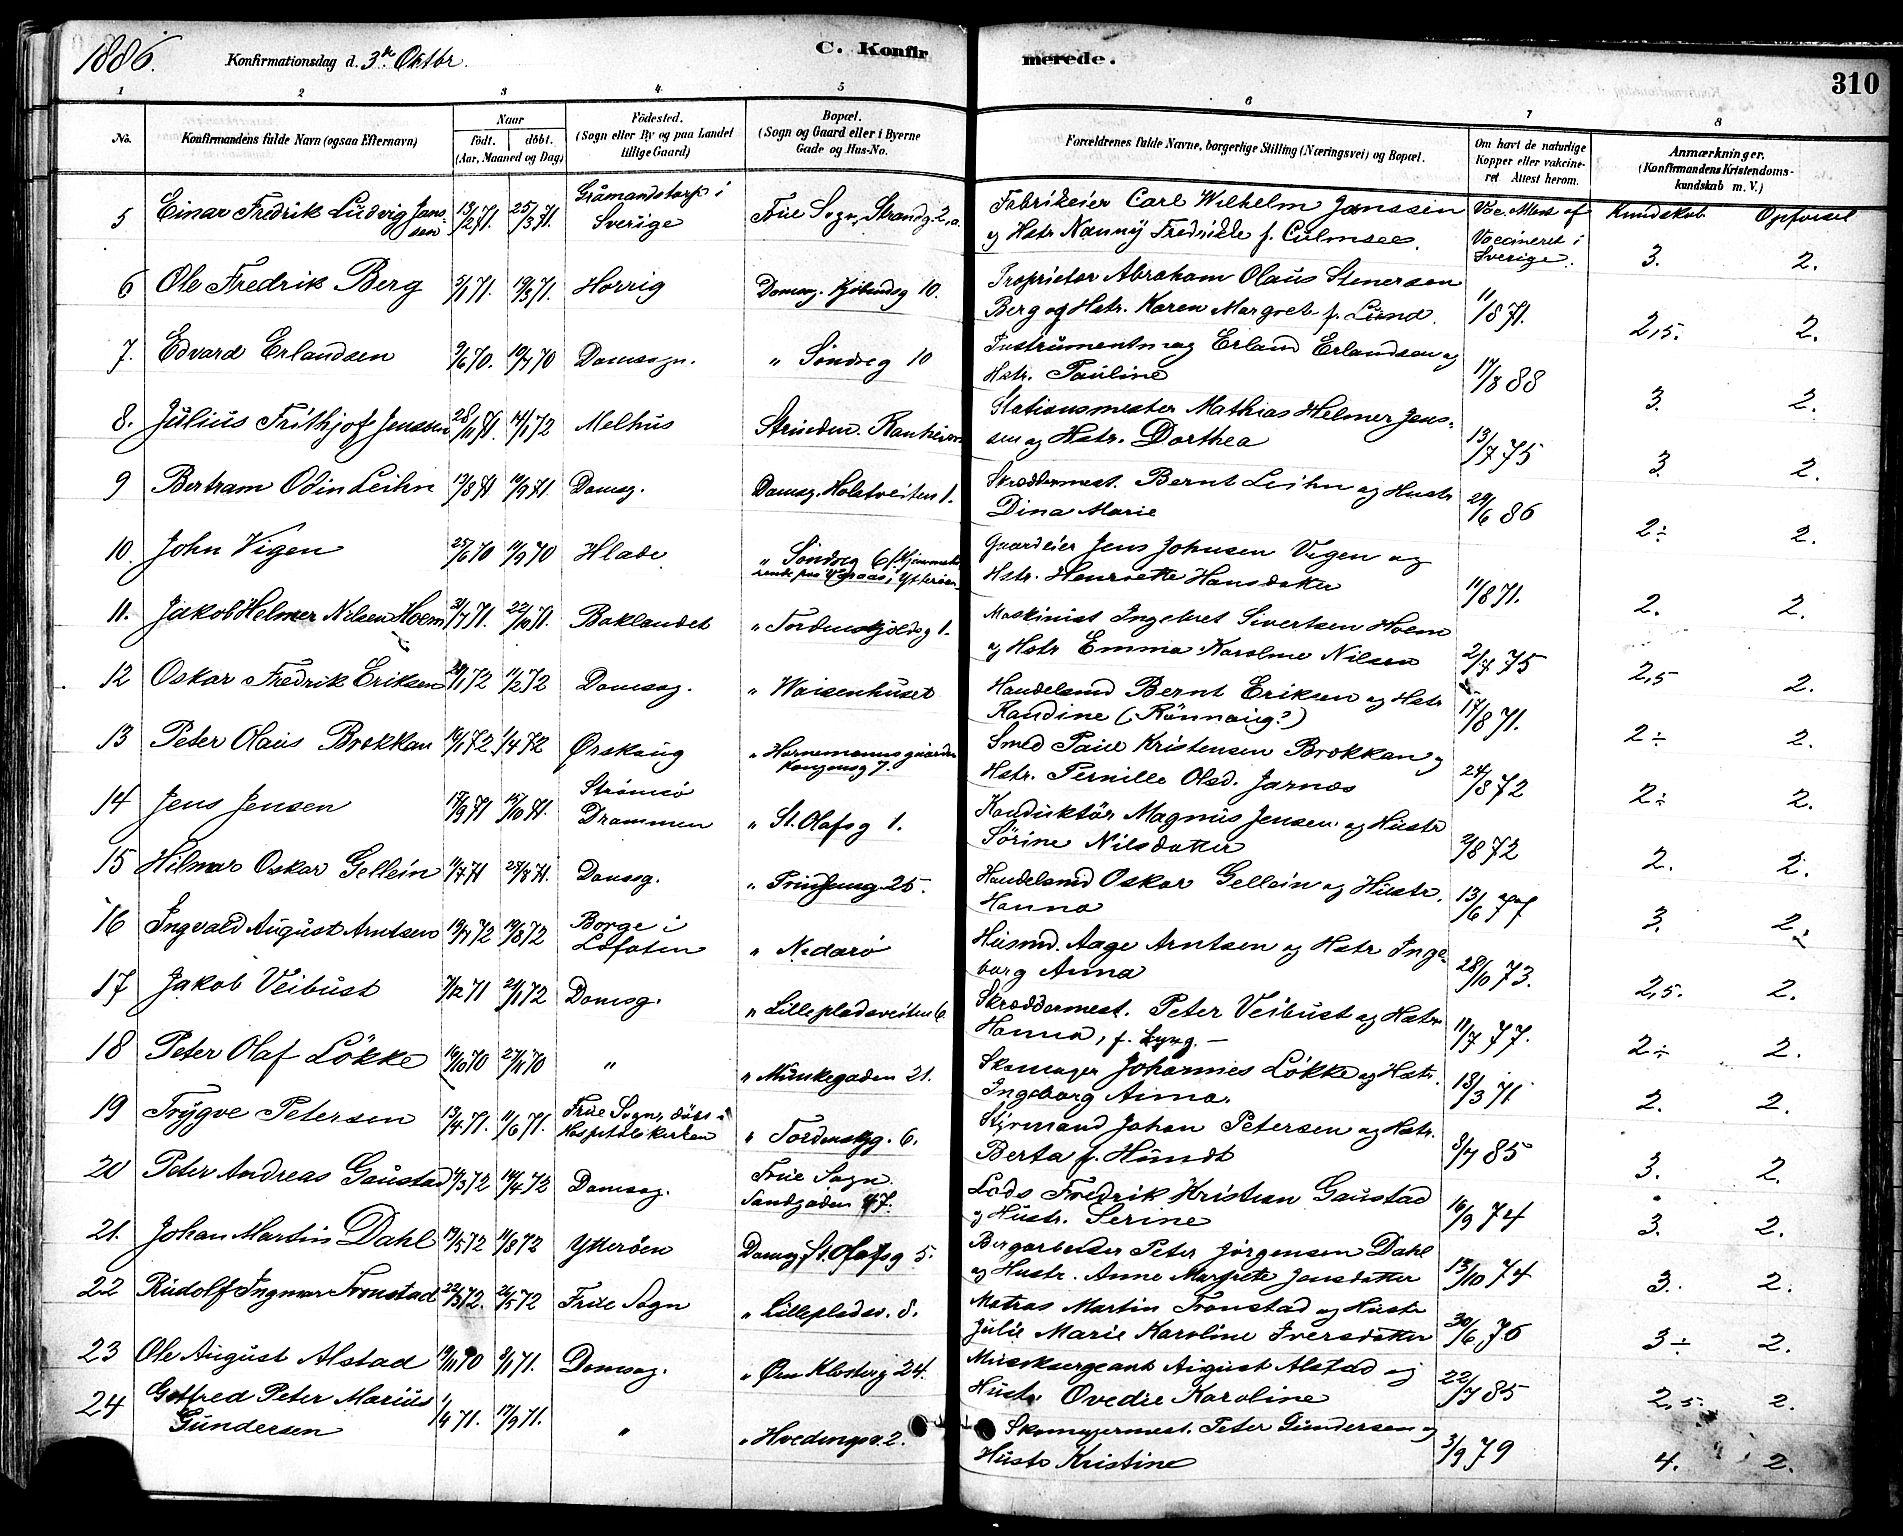 1886.
Konfirmationsdag d. 3die Oktbr.
C. Konfirmerede.
310
1 2 3 4 5 6 7 8
No.
Konfirmandens fulde Navn (ogsaa Efternavn)
Naar
Födt. döbt.
(Aar, Maaned og Dag)
Födested.
(Sogn eller By og paa Landet
tillige Gaard)
Bopæl.
(Sogn og Gaard eller i Byerne
Gade og Hus-No.
Forældrenes fulde Navne, borgerlige Stilling (Næringsvei) og Bopæl.
Om havt de naturlige
Kopper eller vakcine-
ret Attest herom.
Anmærkninger.
(Konfirmandens Kristendoms-
kundskab m. V.)
Kundskab Opförsel
5 Einar Fredrik Ludvig Jans-
sen 13/2 71. 25/3 71. i
Sverige Frue Sogn, Strandg. 2,a. Fabrikeier Carl Wilhelm Janssen
og Hstr Nanny Fredrikke f. Culmsee. Vaccineret i
Sverige. 3. 2.
6 Ole Fredrik Berg 5/1 71. 19/3 71. Horrig Domsog. 10. Proprietør Abraham Olaus Stenersen
Berg og Hstr. Karen Margret f. Lund. 11/8 71. 2,5. 2.
7. Edvard Erlandsen 9/6 70. 10/7 70 Domsogn. " Söndreg 10 Instrumentmag Erland Erlandsen og
Hstr. Pauline 17/8 88 3. 2.
8. Julius Frithjof Jenssen 28/11 71. 14/1 72 Melhus Strinden. Ranheim Stationsmester Mathias Helmer Jens-
sen og Hstr. Dorthea 13/7 75 3. 2.
9 Bertram Odin Leihn 13/8 71 17/9 71. Domsg. Domsg. Holstveiten 1. Skræddermest. Bernt Leihn og Hustr
Dina Marie 29/6 86 2÷ 2.
10. John Vigen 25/6 70 11/9 70 Hlade. " Söndreg 6 Gaardeier Jens Johnsen Vigen og
Hstr. Henriette Hansdatter 11/8 71. 2. 2.
11. Jakob Helmer Nilsen Hoem 31/7 71. 22/10 71. Baklandet " Tordenskjoldsg 1. Maskinist Ingebret Sivertsen Hoem
og Hstr Emma Karoline Nilsen 2/7 75 2,5 2.
12 Oskar Fredrik Eriksen 20/1 72 11/2 72 Domsog. " Waisenhuset Handelsmd Bernt Eriksen og Hstr
Randine (Rönnaug?) 17/8 71. 2÷ 2.
13 Peter Olaus Brokkan 14/1 72. 1/4 72 Ørskoug " Hornemannsgaarden
Kongensg 7. Smed Paul Kristensen Brokkan og
Hstr. Pernille Olsd. Jarnæs 24/8 72 2÷ 2.
14 Jens Jensen 17/9 71 15/10 71. Strømsö
Drammen " St. Olafsg 1. Konduktör Magnus Jensen og Hustr
Sörine Nilsdatter 2/8 72 2. 2.
15 Hilmar Oskar Gellein 11/7 71 27/8 71. Domsg. " Prindseng 25. Handelsmd Oskar Gellein og Hustr.
Hanna 13/6 77 3. 2.
16 Ingvald August Arntsen 19/7 72 19/8 72 Borge i
Lofoten " Nedarö Husmd. Aage Arntsen og Hstr Inge-
borg Anna 28/10 73. 2,5. 2.
17 Jakob Veibust 7/12 71 21/1 72 Domsg. " Lillepladsveiten 6 Skræddermest. Peter Veibust og Hstr
Hanna, f. Lyng. — 11/7 77. 2÷ 2.
18 Peter Olaf Lökke 10/10 70 27/11 70 " " Munkegaden 21. Skomager Johannes Lökke og Hstr.
Ingeborg Anna. 18/3 71 2. 2.
19 Trygve Petersen 13/4 71. 11/6 71. Frue Sogn, döbt i
Hospitalskirken " Tordenskg. 6. Styrmand Johan Petersen og Hstr.
Berta f. Hundt 8/7 85 3. 2.
20 Peter Andreas Gaustad 4/3 72 14/4 72 Domsog. Frue Sogn.
Sandgaden 47. Lods Fredrik Kristian Gaustad
og Hustr. Serine 16/9 74 3. 2.
21. Johan Martin Dahl 19/5 72 11/8 72 Ytteröen Domsog St. Olafsg 5. Bergarbeider Peter Jörgensen Dahl
og Hustr. Anne Margrete Jensdatter 13/10 74 3. 2.
22 Rudolf Ingmar Tronstad 22/3 72. 26/5 72 Frue Sogn " Lillepladsv. 8. Matros Martin Tronstad og Hustr
Julie Marie Karoline Iversdatter 30/6 76 3÷ 2.
23 Ole August Alstad 19/11 70 8/1 71. Domsog. " Øvre Klosterg 24. Musiksergeant August Alstad og
Hustr. Ovedie Karoline 22/7 85 2,5. 2.
24 Gotfred Peter Marius
Gundersen 1/9 71. 17/9 71. " " 2. Skomagermest. Peter Gundersen og
Hustr Kristine 3/9 79 4. 2.